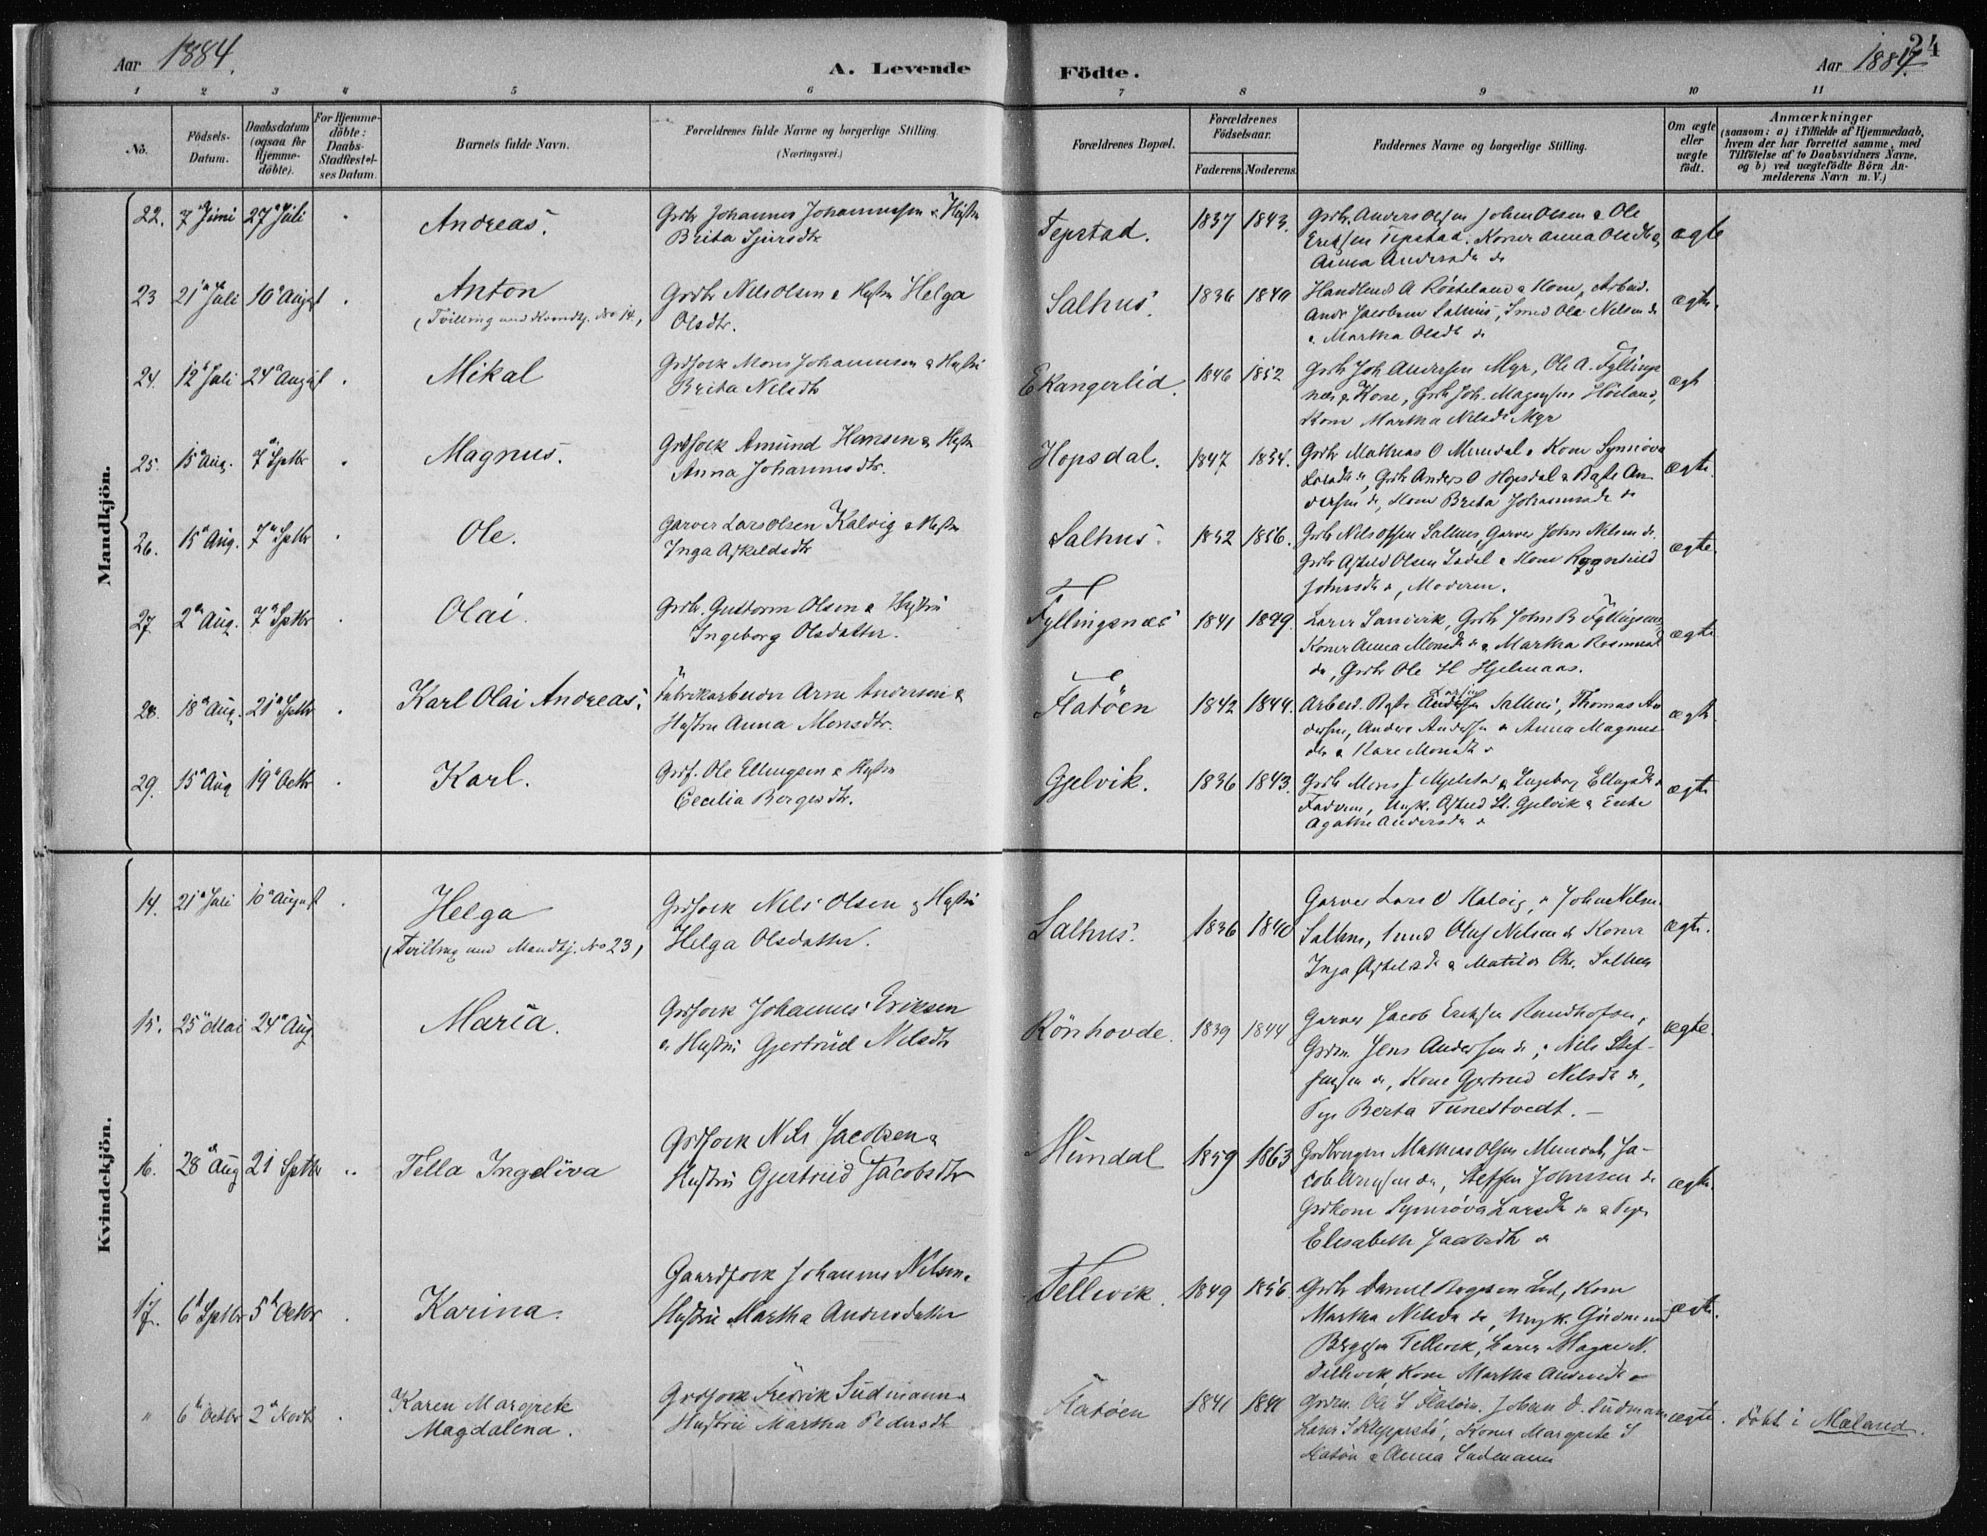 Aar 1884.
A. Levende Födte.
Aar 1884.
24
1 2 3 4 5 6 7 8 9 10 11
No.
Födsels-Datum.
Daabsdatum (ogsaa for Hjemme-döbte).
For Hjemme-döbte: Daabs-Stadfæstel-ses Datum.
Barnets fulde Navn.
Forældrenes fulde Navne og borgerlige Stilling.
(Næringsvei.)
Forældrenes Bopæl.
Forældrenes Födselsaar.
Faderens. Moderens.
Faddernes Navne og borgerlige Stilling.
Om ægte eller uægte födt.
Anmærkninger
(saasom: a) i Tilfælde af Hjemmedaab, hvem der har forrettet samme, med Tilföielse af to Daabsvidners Navne, og b) ved uægtefödte Börn An-melderens Navn m. V.)
Mandkjön.
22. 7 Juni 27 Juli Andreas.
Grdbr Johannes Johannessen & Hustru
Brita Sjursdtr
Tepstad. 1837 1843.
Grdbr. Anders Olsen John Olsen & Ole
Eriksen Tepstad. Koner Anna Olsdtr &
Anna Andersdtr do
ægte
23 21 Juli 10 August Anton
(Tvilling med Kvindkj. No 14.)
Grdbr Nils Olsen & Hustru Helga
Olsdtr.
Salhus. 1836 1840
Andr Jacobsen Salhus, Smed Ole Nilsen do
& Martha Olsdtr do
ægte.
24. 12 Juli 24 August Mikal
Grdfolk Mons Johannesen & Hustru
Brita Nilsdtr
Ekangerlid. 1846 1852
Grdbr Joh Andersen Myr, Ole A. Fyllings
næs & Kone, Grdbr Joh. Magnusen Höiland,
Kone Martha Nilsdtr Myr
ægt
25. 15 Aug. 7 Septbr Magnus.
Grdfolk Amund Hansen & Hustru
Anna Johannesdtr.
Hopsdal. 1847 1854.
Grdbr Mathias O Mundal & Kone Synnöva
Larsdtr do, Grdbr Anders O Hopsdal &
dersen do, Kone Brita Johannesdtr do
ægte.
26. 15 Aug. 7 Septbr Ole.
Garver Lars Olsen Kalvig & Hustru
Inga Askildsdtr
Salhus. 1852 1856.
Grdbr Nils Olsen Salhus, Garver John Nilsen do.
Grdbr Askild Olsen & Kone Ragnhild
Johnsdtr do, Moderen.
ægte.
27. 2 Aug. 7 Septbr Olai.
Grdbr. Guttorm Olsen & Hustru
Ingeborg Olsdatter.
Fyllingsnæs 1841 1849.
Lærer Sandvik, Grdbr John B Fyllingsnæs
Koner Anna Monsdtr do & Martha Rasmusdtr
do, Grdbr Ole H Hjelmaas.
ægte
28. 18 Aug. 21 Septbr Karl Olai Andreas.
Fabrikarbeider Arne Andersen &
Hustru Anna Monsdtr.
Flatöen 1842 1844.
Arbeid. Salhus, Thomas An
dersen, Anders Andersen & Anna Magnus
dtr & Kare Monsdtr do
ægte
29. 15 Aug 19 Octbr Karl.
Grdf. Ole Ellingsen & Hustru
Cecilia Borgesdtr.
Gjelvik. 1836 1843.
Grdbr Mons J Mjelstad & Ingeborg Ellingsdtr do
Faderen, Ungk. Askild St. Gjelvik & Enke
Agathe Andersdtr do
ægte
Kvindekjön.
14. 21 Juli 10 August Helga
(Tvilling med Mandkj. No 23)
Grdfolk Nils Olsen & Hustru
Helga Olsdatter.
Salhus. 1836 1840
Garver Lars O Kalvig, & John Nilsen
Salhus, Smed Oluf Nilsen do Koner
Inga Askildsdtr & Matilde Chr. Salhus
ægte.
15. 25 Mai 24 Aug. Maria.
Grdfolk Johannes Eriksen
& Hustru Gjertrud Nilsdtr
Rönhovde. 1839 1844
Garver Jacob Eriksen
Grdm. Jens Andersen do, & Nils Stef-
fensen do, Kone Gjertrud Nilsdtr do,
Pige Berta Tunestvedt. —
ægte.
16. 28 Aug 21 Septbr Tella Ingeliva
Grdfolk Nils Jacobsen &
Hustru Gjertrud Jacobsdtr
Mundal 1859 1863
Gardbrugere Mathias Olsen Mundal, Ja-
cob Arnesen do, Steffen Johnsen do
Grdkone Synnöva Larsdtr do & Pige
Elisabeth Jacobsdtr do
ægte.
17. 6 Septbr 5 Octbr Karina.
Gaardfolk Johannes Nilsen &
Hustru Martha Andersdatter
Tellevik. 1849 1856.
Grdbr Daniel Lid, Kone
Martha Nilsdtr do, Ungk. Gudmund
Tellevik, Lærer Magne N.
Tellevik, Kone Martha Andersdtr do
ægte.
" 6 Octbr 2 Novb Karen Margrete
Magdalena.
Grdfolk Fredrik Sudmann &
Hustru Martha Pedersdtr
Flatöen 1841 1841
Grdm. Ole S Flatöen, Johan D. Sudmann
Lærer S Kleppestö, Koner Margrete S
Flatöen & Anna Sudmann
ægte. Döbt i Mæland.